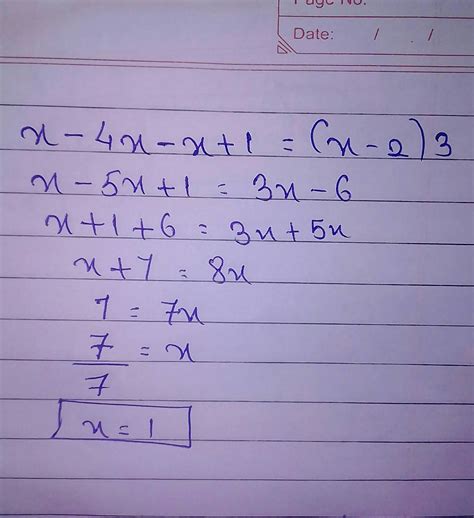 Page No.
Date: / /
x - 4x - x + 1 = (x - 2) 3
x - 5x + 1 = 3x - 6
x + 1 + 6 = 3x + 5x
x + 7 = 8x
7 = 7x
7/7 = x
x = 1